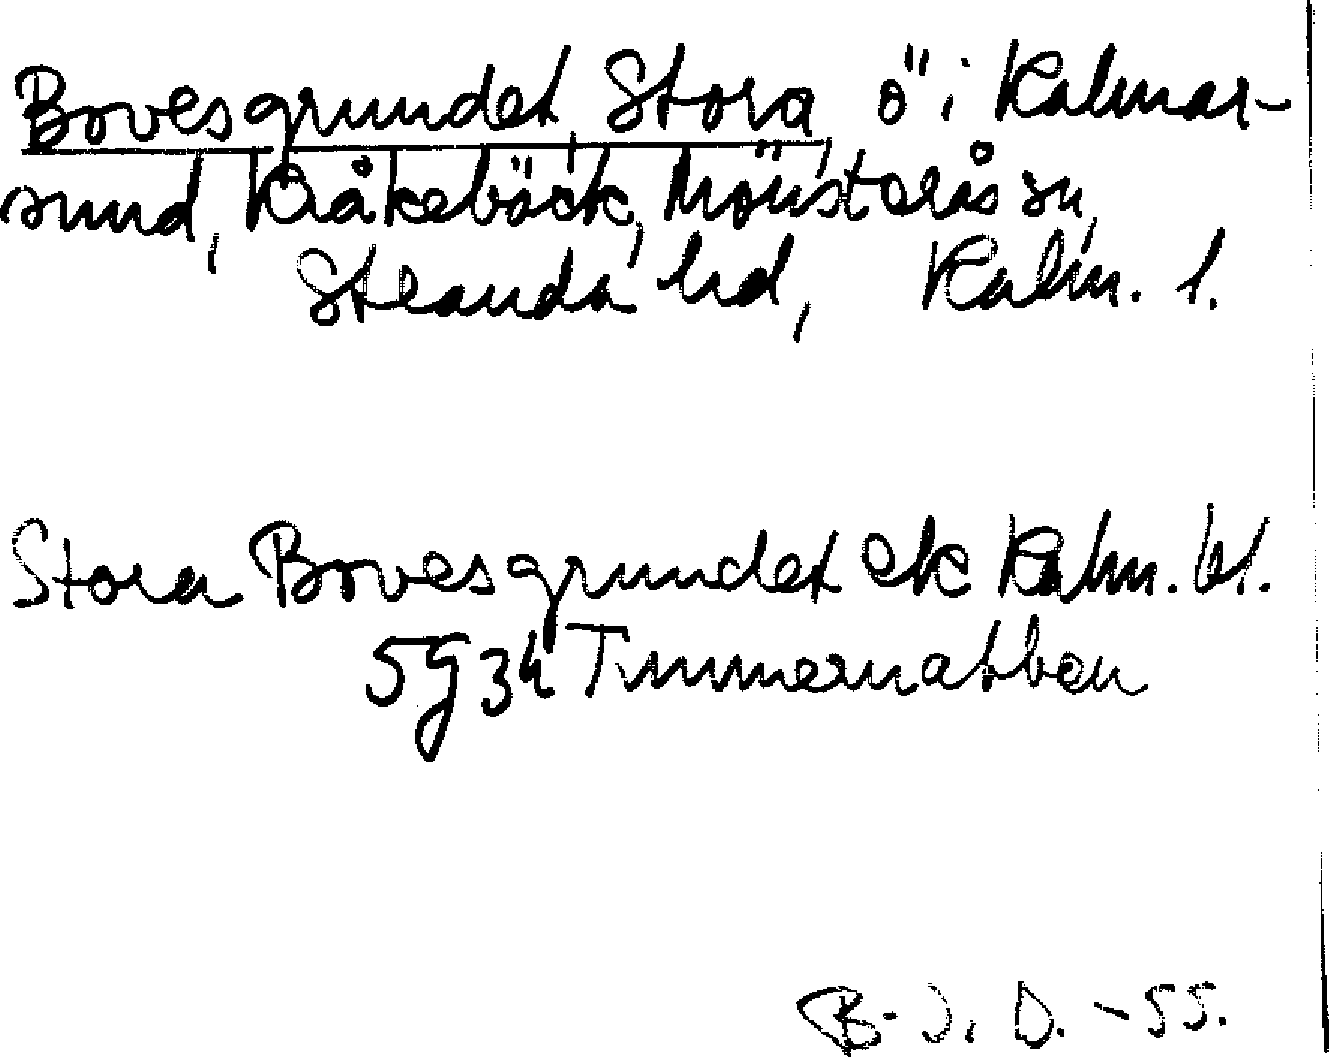 Bovesgrundet, Stora, ö i Kalmar-
sund, Kråkebäck, Mönsterås sn,
Stranda hd, Kalm. l.
Stora Bovesgrundet ek Kalm. bl.
5g34 Timmernabben
B-J. D. -55.